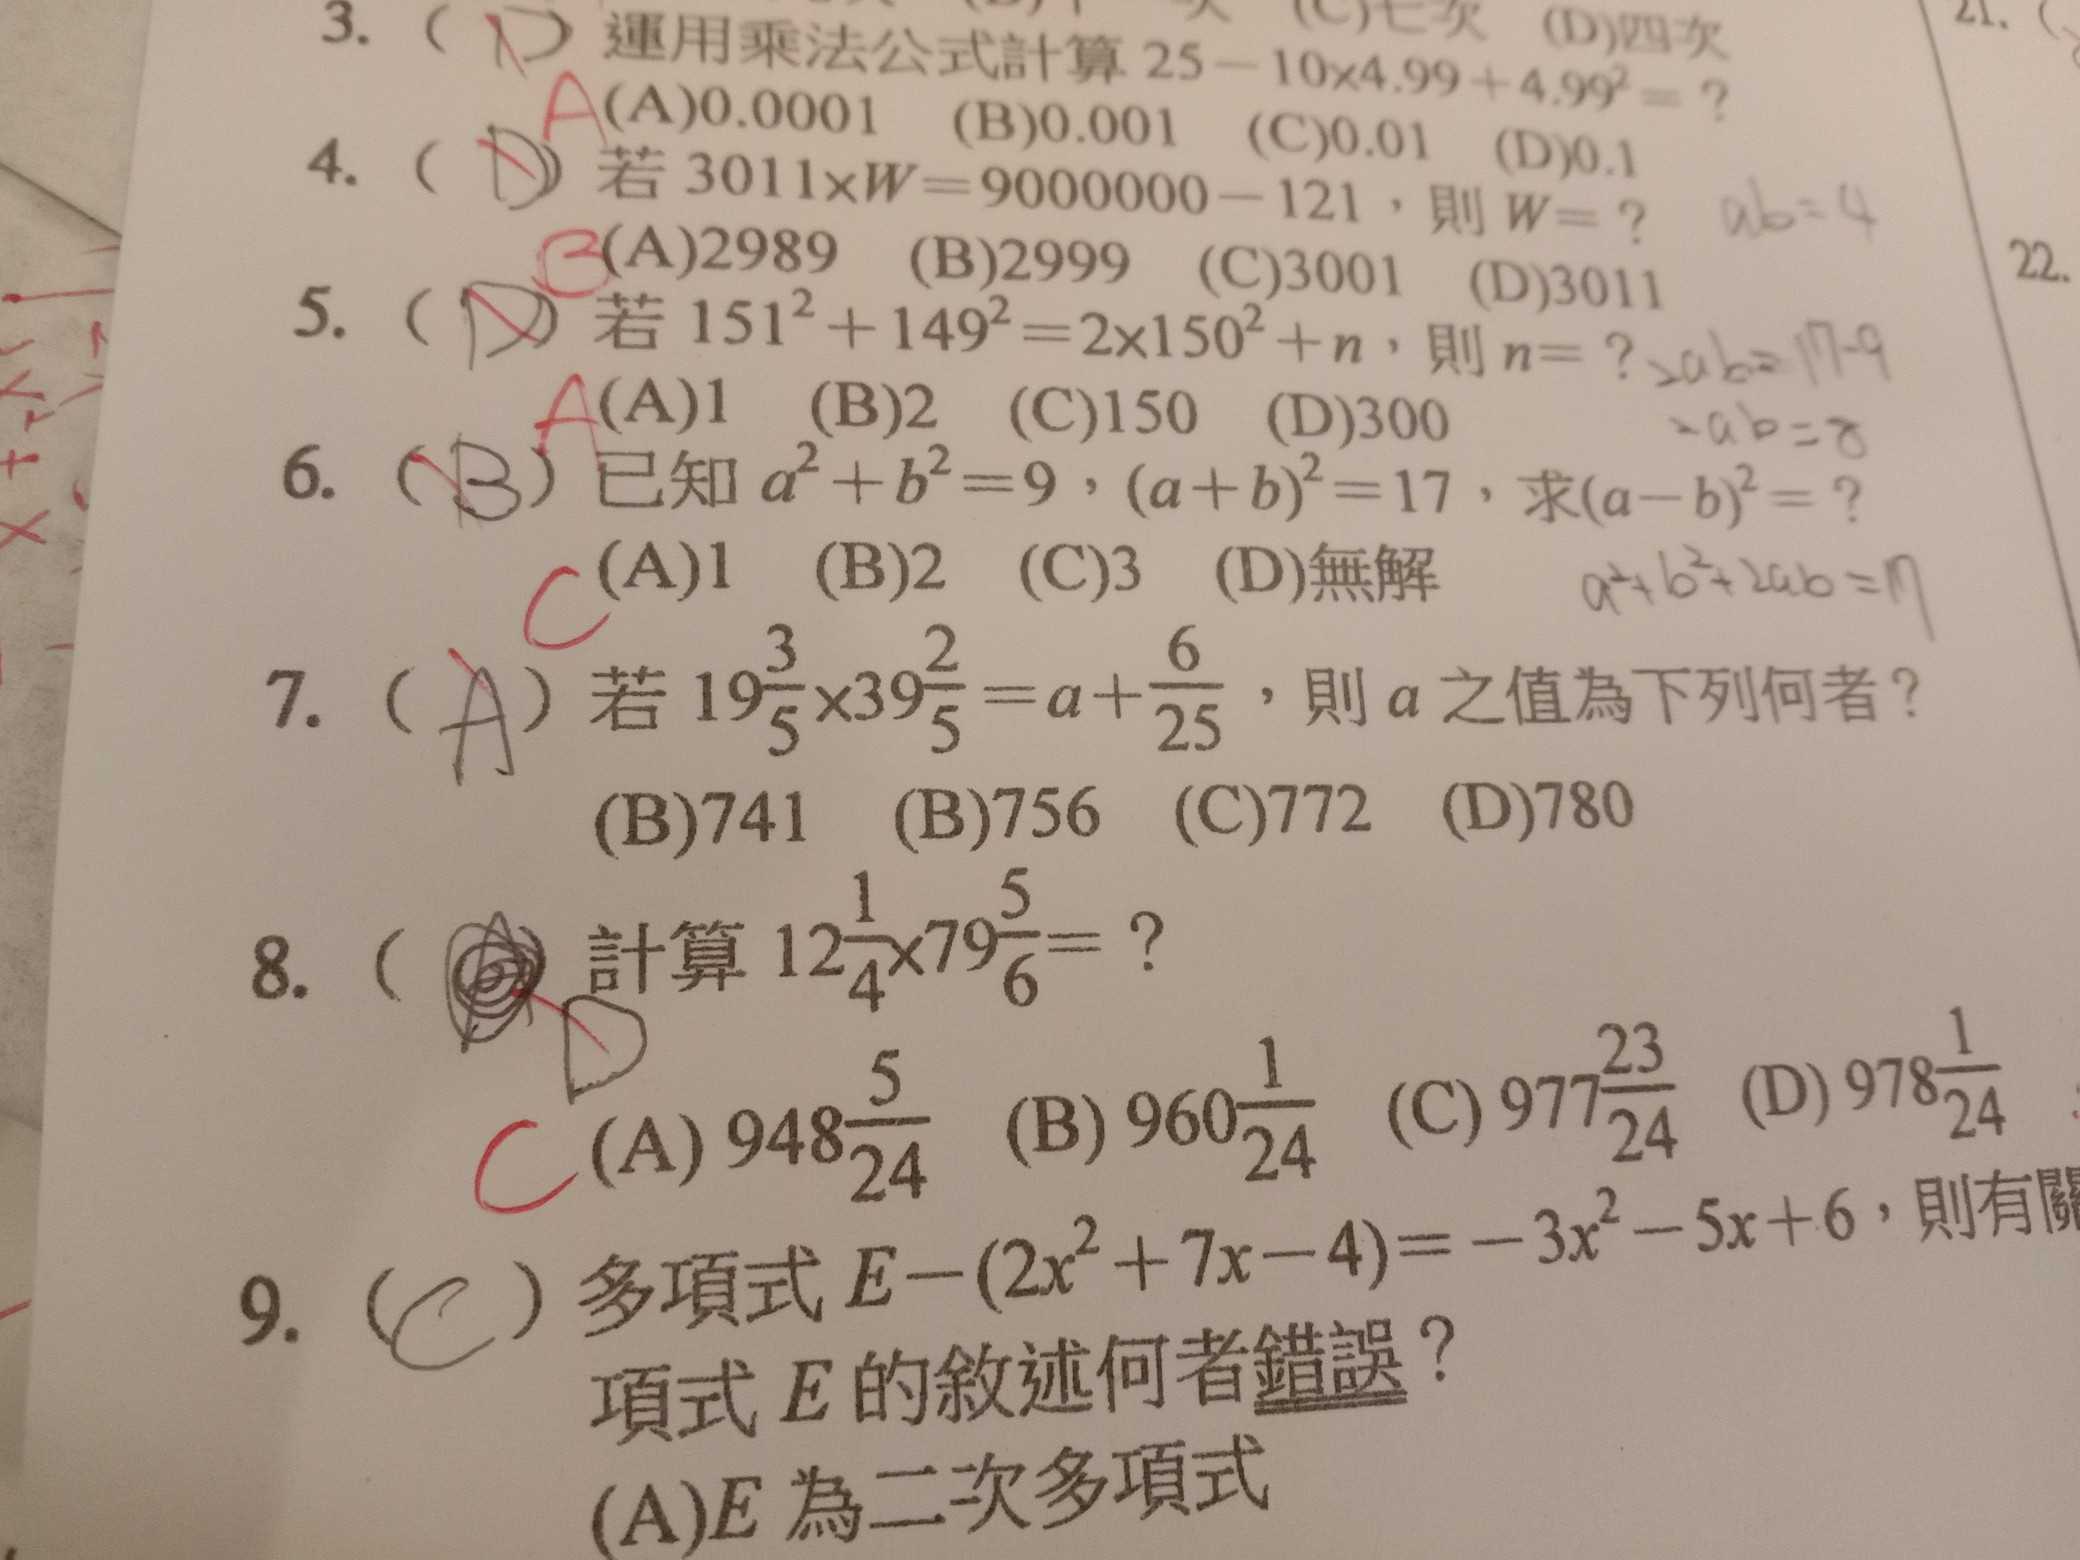 (C)七次 (D)四次
21. (
3. ( D ) 運用乘法公式計算 25－10×4.99＋4.99²＝？
A (A)0.0001 (B)0.001 (C)0.01 (D)0.1
4. ( D ) 若 3011×W＝9000000－121，則 W＝？ ab=4
B (A)2989 (B)2999 (C)3001 (D)3011
22.
5. ( D ) 若 151²＋149²＝2×150²＋n，則 n＝？ 2ab=17-9
A (A)1 (B)2 (C)150 (D)300 2ab=8
6. ( B ) 已知 a²＋b²＝9，(a＋b)²＝17，求(a－b)²＝？
C (A)1 (B)2 (C)3 (D)無解 a²+b²+2ab=17
7. ( A ) 若 19 3/5×39 2/5＝a＋6/25，則 a 之值為下列何者？
(B)741 (B)756 (C)772 (D)780
8. ( ) D 計算 12 1/4×79 5/6＝？
C (A) 948 5/24 (B) 960 1/24 (C) 977 23/24 (D) 978 1/24
9. ( C ) 多項式 E－(2x²＋7x－4)＝－3x²－5x＋6，則有關
項式 E 的敘述何者錯誤？
(A)E 為二次多項式